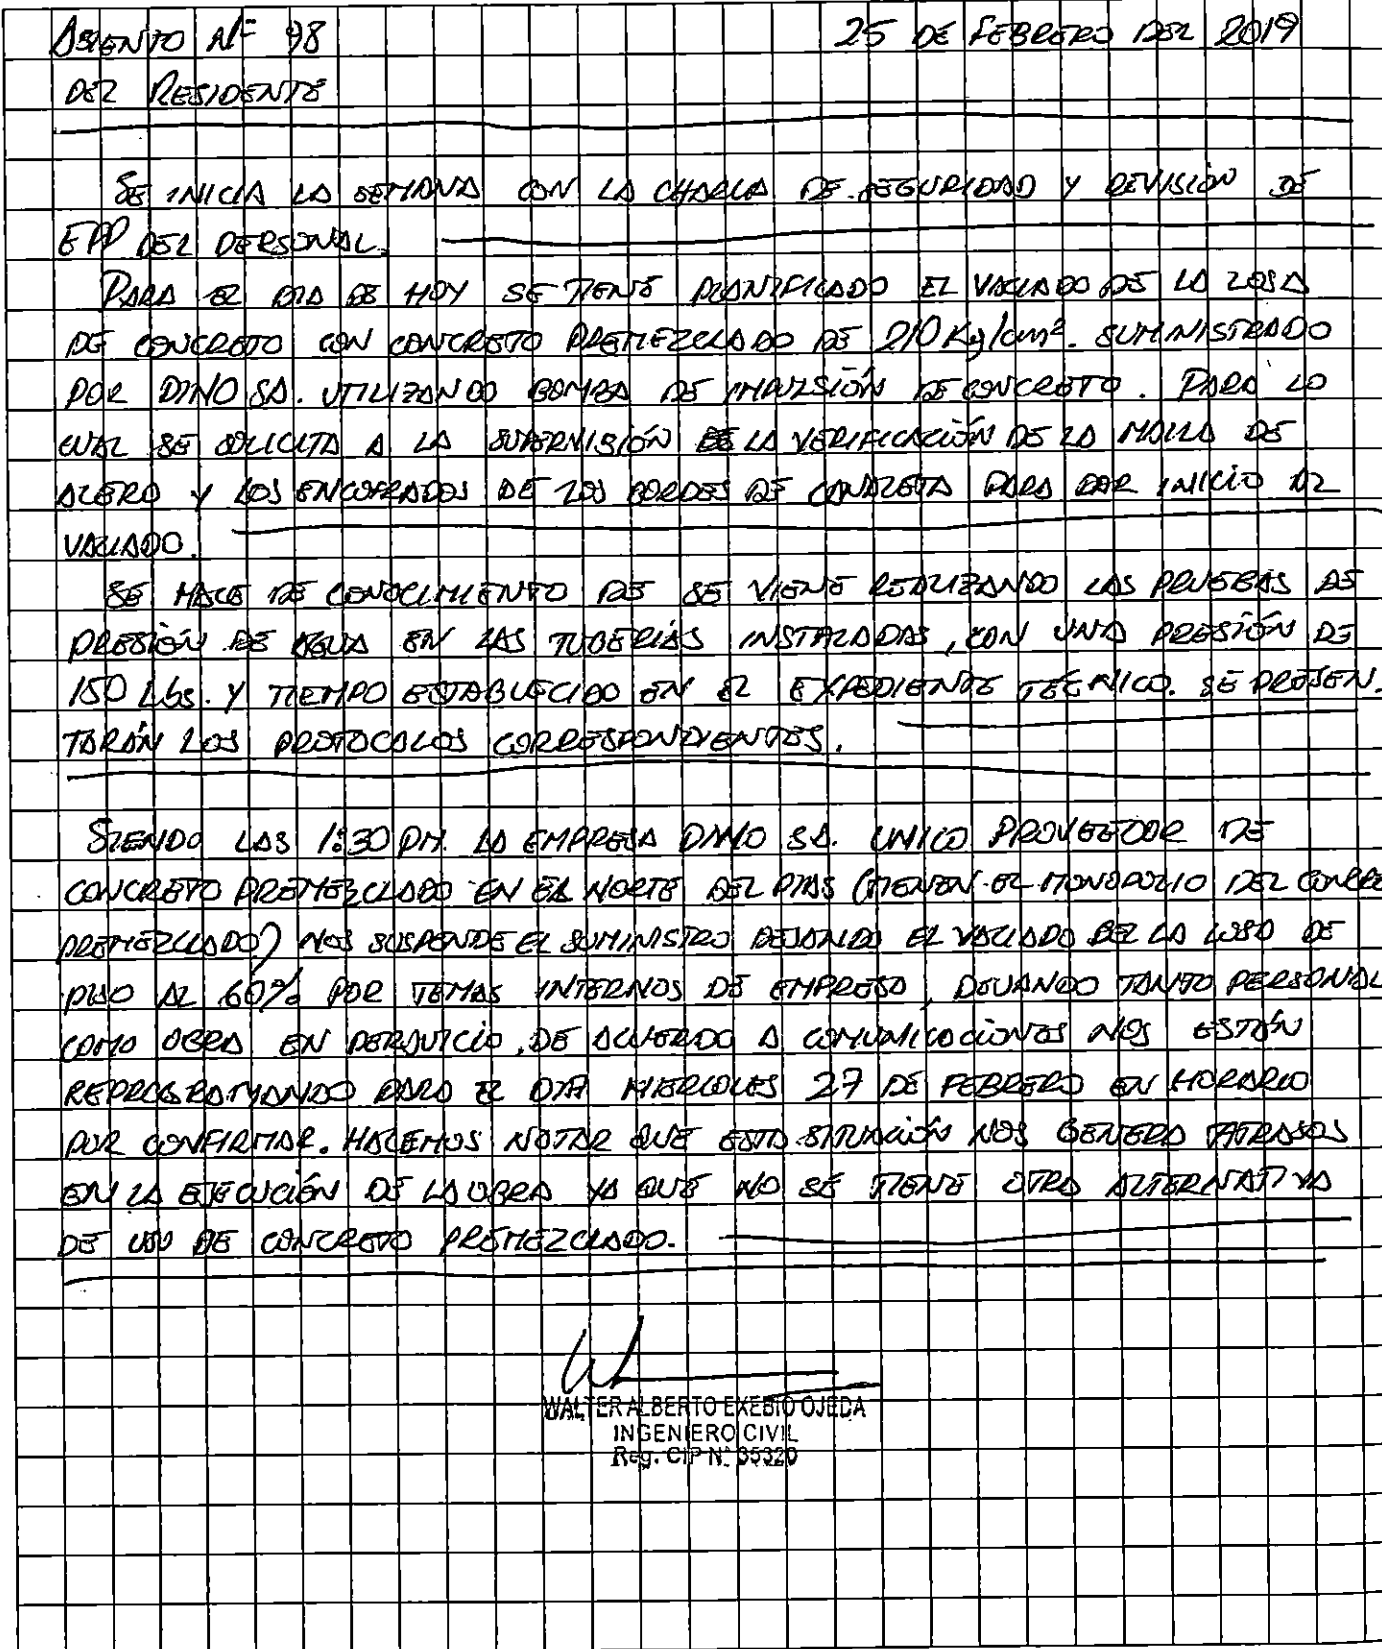 ASIENTO Nº 98 25 DE FEBRERO DEL 2019
DEL RESIDENTE
SE INICIA LA SEMANA CON LA CHARLA DE SEGURIDAD Y REVISIÓN DE
EPP DEL PERSONAL.
PARA EL DIA DE HOY SE TIENE PLANIFICADO EL VACIADO DE LA LOSA
DE CONCRETO CON CONCRETO PREMEZCLADO DE 210 Kg/cm². SUMINISTRADO
POR DINO SA. UTILIZANDO BOMBA DE IMPULSIÓN DE CONCRETO. PARA LO
CUAL SE SOLICITA A LA SUPERVISIÓN LA VERIFICACIÓN DE LA MALLA DE
ACERO Y LOS ENCOFRADOS DE LOS BORDES DE CANALETA PARA DAR INICIO AL
VACIADO.
SE HACE DE CONOCIMIENTO DE SE VIENE REALIZANDO LAS PRUEBAS DE
PRESIÓN DE AGUA EN LAS TUBERIAS INSTALADAS, CON UNA PRESIÓN DE
150 Lbs. Y TIEMPO ESTABLECIDO EN EL EXPEDIENTE TÉCNICO. SE PRESEN-
TARÁN LOS PROTOCALOS CORRESPONDIENTES.
SIENDO LAS 1:30 PM. LA EMPRESA DINO SA. UNICO PROVEEDOR DE
CONCRETO PREMEZCLADO EN EL NORTE DEL PAIS (TIENEN EL MONOPOLIO DEL CONCRE
PREMEZCLADO) NOS SUSPENDE EL SUMINISTRO DEJANDO EL VACIADO DEL LA LOSA DE
PISO AL 60% POR TEMAS INTERNOS DE EMPRESA, DEJANDO TANTO PERSONAL
COMO OBRA EN PERJUICIO. DE ACUERDO A COMUNICACIONES NOS ESTÁN
REPROGRAMANDO PARA EL DIA MIERCOLES 27 DE FEBRERO EN HORARIO
POR CONFIRMAR. HACEMOS NOTAR QUE ESTA SITUACIÓN NOS GENERA ATRASOS
EN LA EJECUCIÓN DE LA OBRA YA QUE NO SE TIENE OTRA ALTERNATIVA
DE USO DE CONCRETO PREMEZCLADO.
WALTER ALBERTO EXEBIO OJEDA
INGENIERO CIVIL
Reg. CIP Nº 35320